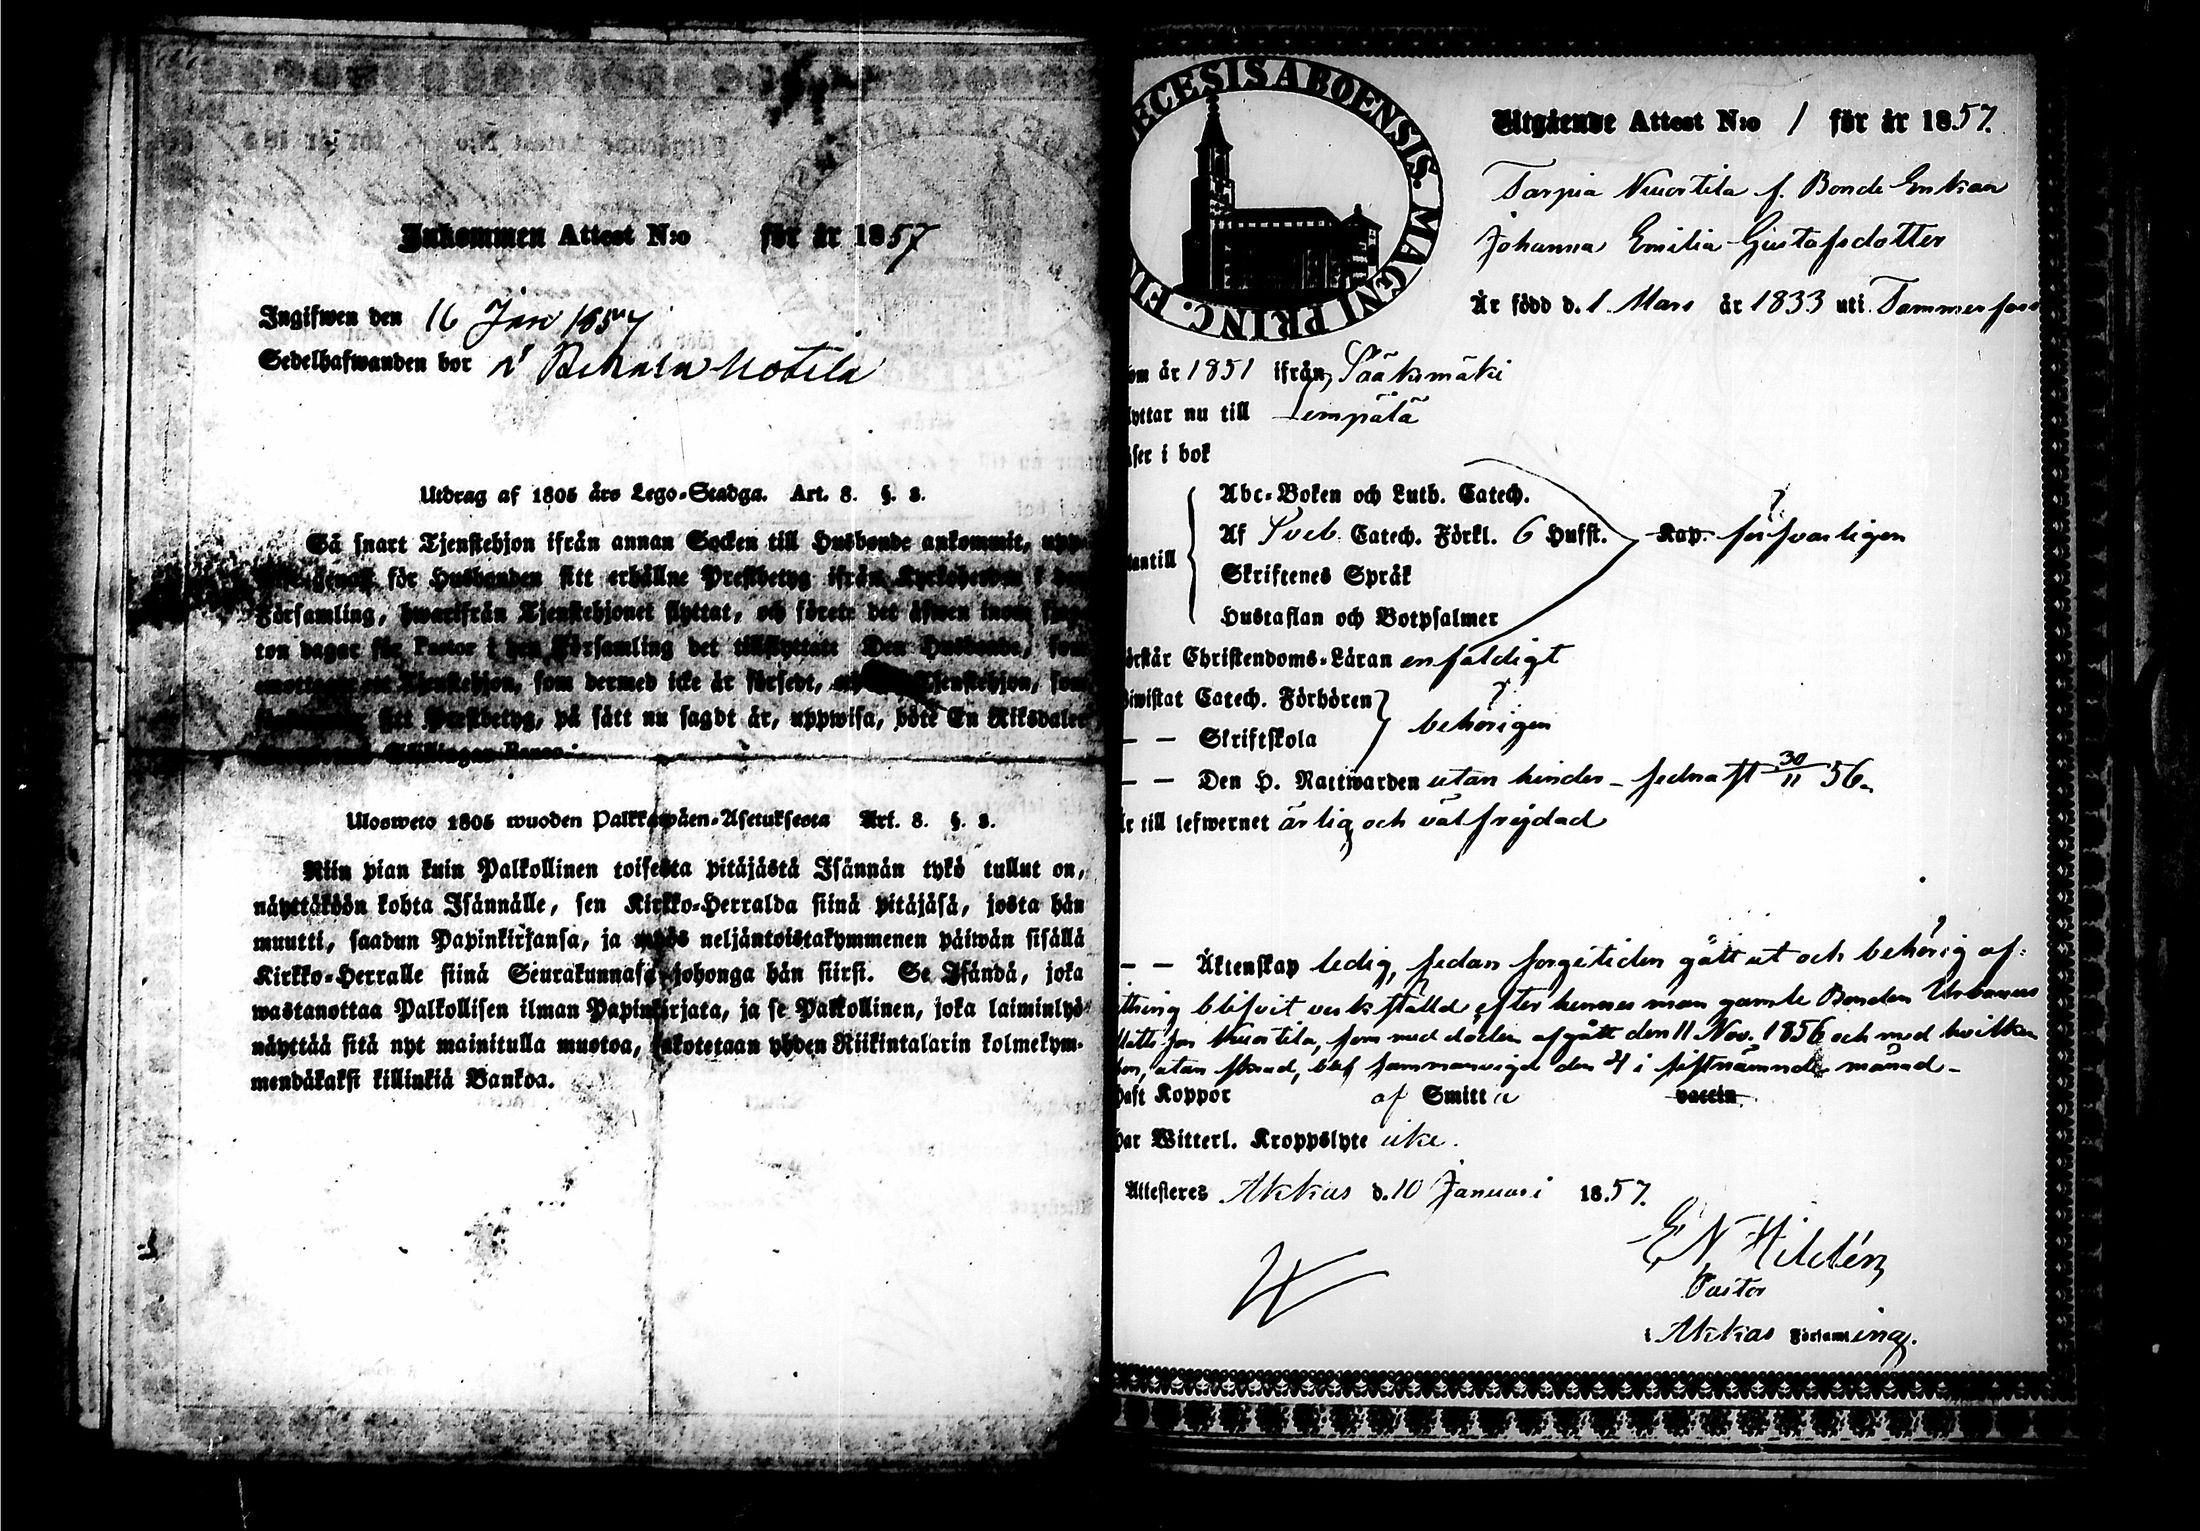 Inkommen Attest N:o för år 1857
Ingifwen den 16 Jan 1857
Sedelhafwanden bor
Utdrag af 1805 års Lego-Stadga. Art. 8. §. 2.
Så snart Tjenstehjon ifrån annan Socken till Husbonde ankommit,
för Husbonden sitt erhållne Prestbetyg ifrån Kyrkoherden i den
Församling, hwarifrån Tjenstehjonet flyttat, och förete det äfwen inom
ton dagar för Pastor i den Församling det tillflyttat. Den Husbonde, som
Tjenstehjon, som dermed icke är försedt, Tjenstehjon, som
sitt Prestbetyg, på sätt nu sagdt är, uppwisa, böte En Riksdaler
Skillingar Banco.
Ulosweto 1805 wuoden Palkkawäen-Asetuksesta Art. 8. §. 2.
Niin pian kuin Palkollinen toisesta pitäjästä Isännän tykö tullut on,
näyttäköön kohta Isännälle, sen Kirkko-Herralda siinä pitäjäsä, josta hän
muutti, saadun Papinkirjansa, ja myös neljäntoistakymmenen päiwän sisällä
Kirkko-Herralle siinä Seurakunnasa johonga hän siirsi. Se Isändä, joka
wastanottaa Palkollisen ilman Papinkirjata, ja se Palkollinen, joka laiminlyö
näyttää sitä nyt mainitulla muotoa, sakotetaan yhden Riikintalarin kolmekym-
mendäkaksi killinkiä Bankoa.
ECESIS ABOENSIS. MAGNI PRINC. FIN
Utgående Attest N:o 1 för år 1857.
Tarpia Nuortila f. Bonde Enkan
Johanna Emilia Gustafsdotter
Är född d. 1 Mars år 1833 uti Tammerfors
om år 1851 ifrån Sääksmäki
lyttar nu till Lempälä
äser i bok
Abc-Boken och Luth. Catech.
Af Sveb. Catech. Förkl. 6 Hufst. Kap. försvarligen
antill
Skriftenes Språk
Hustaflan och Botpsalmer
örstår Christendoms-Läran enfaldigt
iwistat Catech. Förhören
behörigen
— — Skriftskola
— — Den H. Nattwarden utan hinder – sednast 30/11 56.
Är till lefwernet ärlig och välfrejdad
— — Äktenskap ledig, sedan sorgetiden gått ut och behörig af:
ittring blifvit verkställd efter hennes man gamle Bonden Urbanus
Nuortila, som med döden afgått den 11 Nov. 1856 och med hvilken
hon, utan blef sammanvigd den 4 i sistnämnde månad –
haft Koppor af Smitta vaccin
har Witterl. Kroppslyte icke.
Attesteres Akkas d. 10 Januari 1857.
E N Hildén
Pastor
i Akkas Församling.